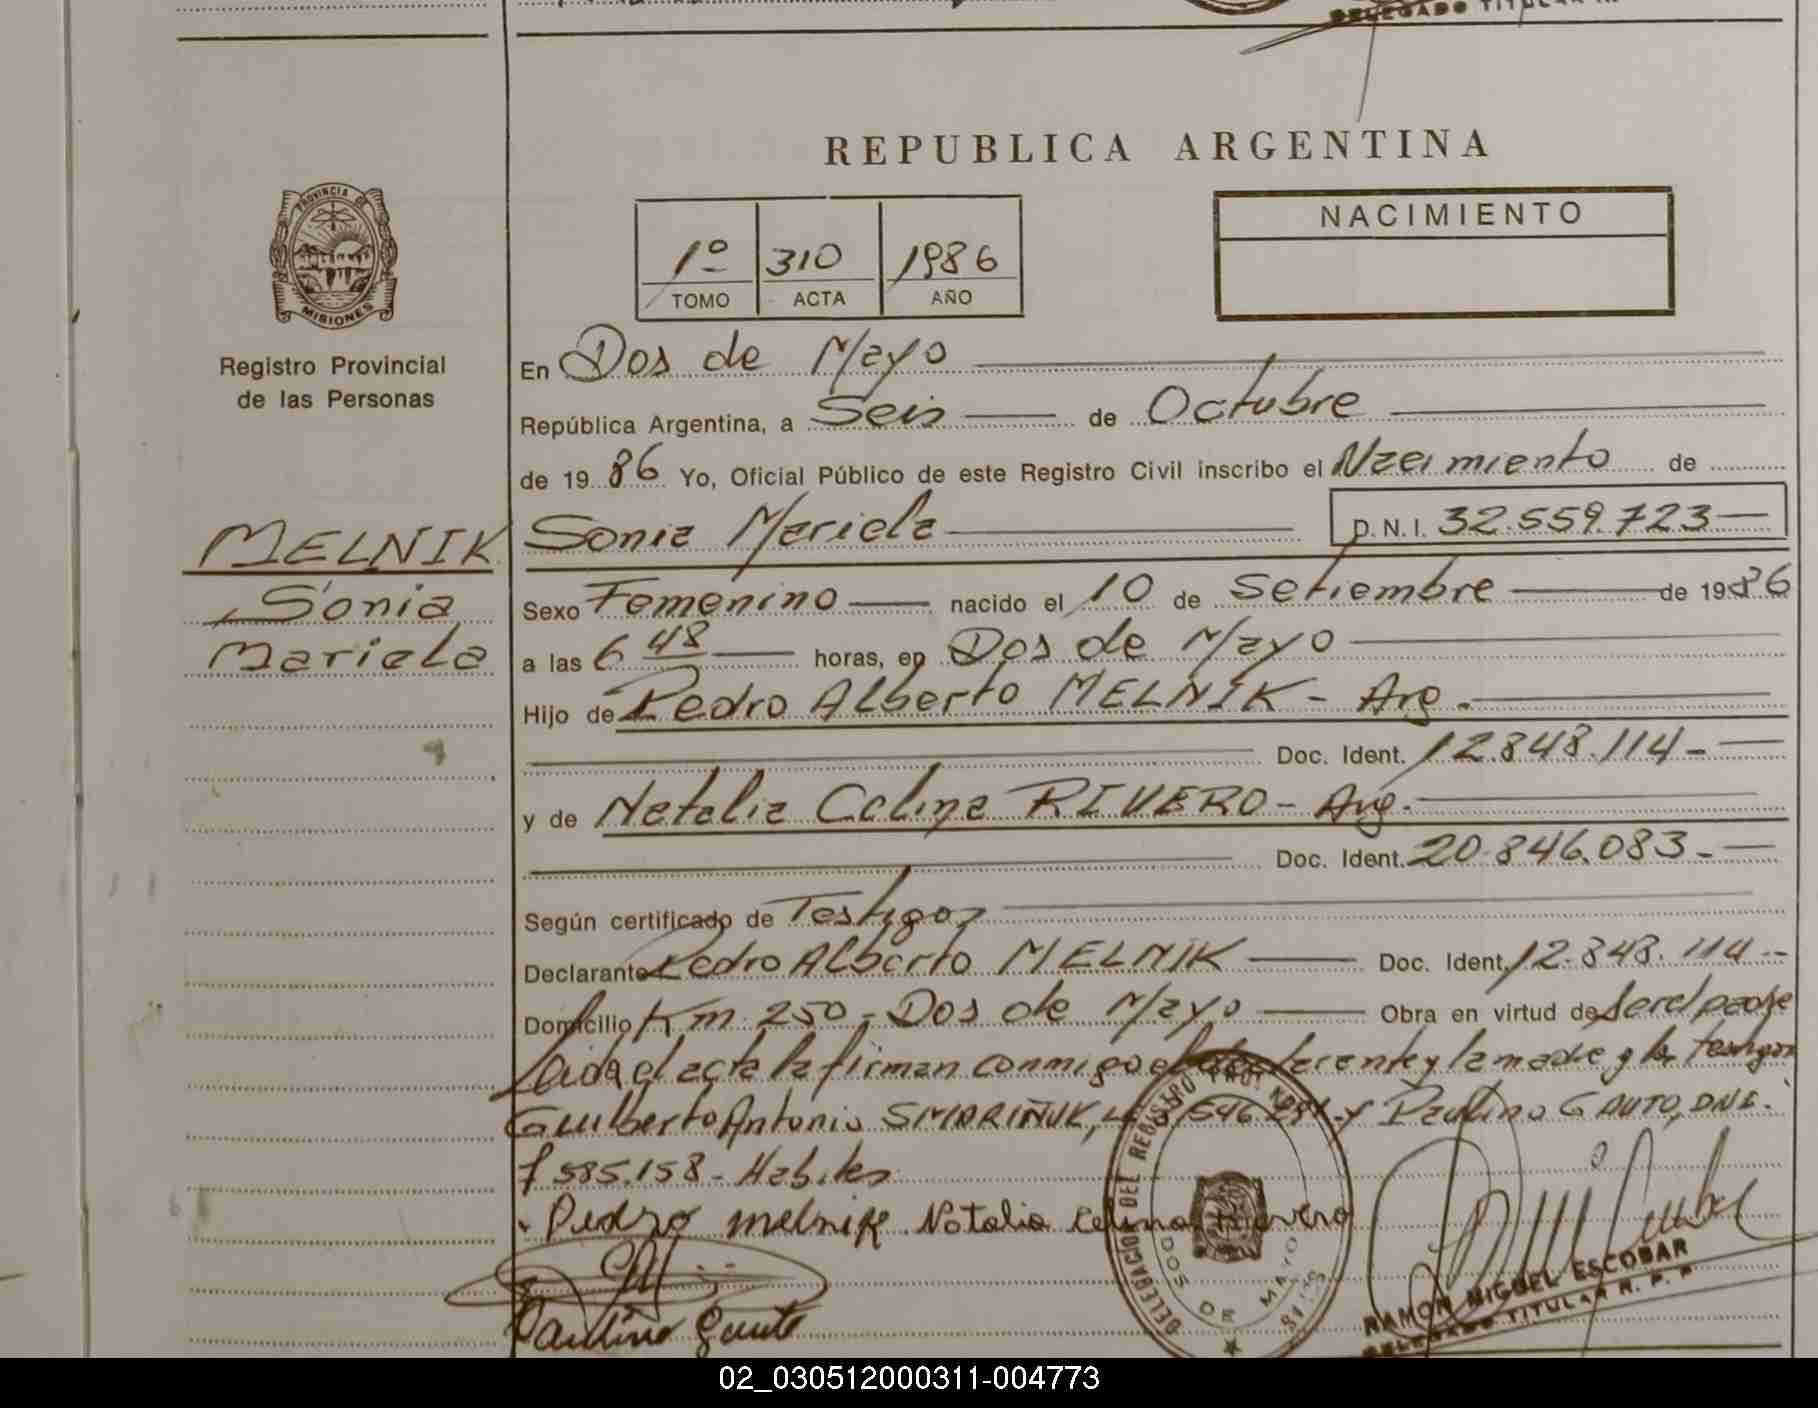 DELEGADO TITULAR
REPUBLICA ARGENTINA
PROVINCIA DE
MISIONES
Registro Provincial
de las Personas
1º 310 1986
TOMO ACTA AÑO
NACIMIENTO
En Dos de Mayo
República Argentina, a Seis de Octubre
de 1986 Yo, Oficial Público de este Registro Civil inscribo el Nacimiento de
MELNIK
Sonia
Mariela
Sonia Mariela D.N.I. 32.559.723
Sexo Femenino nacido el 10 de Setiembre de 1986
a las 6 48 horas, en Dos de Mayo
Hijo de Pedro Alberto MELNIK - Arg.
Doc. Ident. 12.848.114-
y de Natalia Celina RIVERO - Arg.
Doc. Ident. 20.846.083.-
Según certificado de Testigos
Declarante Pedro Alberto MELNIK Doc. Ident. 12.848.114--
Domicilio Km. 250 - Dos de Mayo Obra en virtud de ser el padre
Leida el acta la firman conmigo el declarente y la madre y los testigos
Antonio SMARIÑUK, y Paulino GAUTO, DNI.
7.585.158 - Habiles
Pedro melnik Natalia Celina Rivero
Paulino Gauto
DELEGACION DEL REGISTRO PROV.
DOS DE MAYO
RAMON MIGUEL ESCOBAR
DELEGADO TITULAR R. P. P
02_030512000311-004773